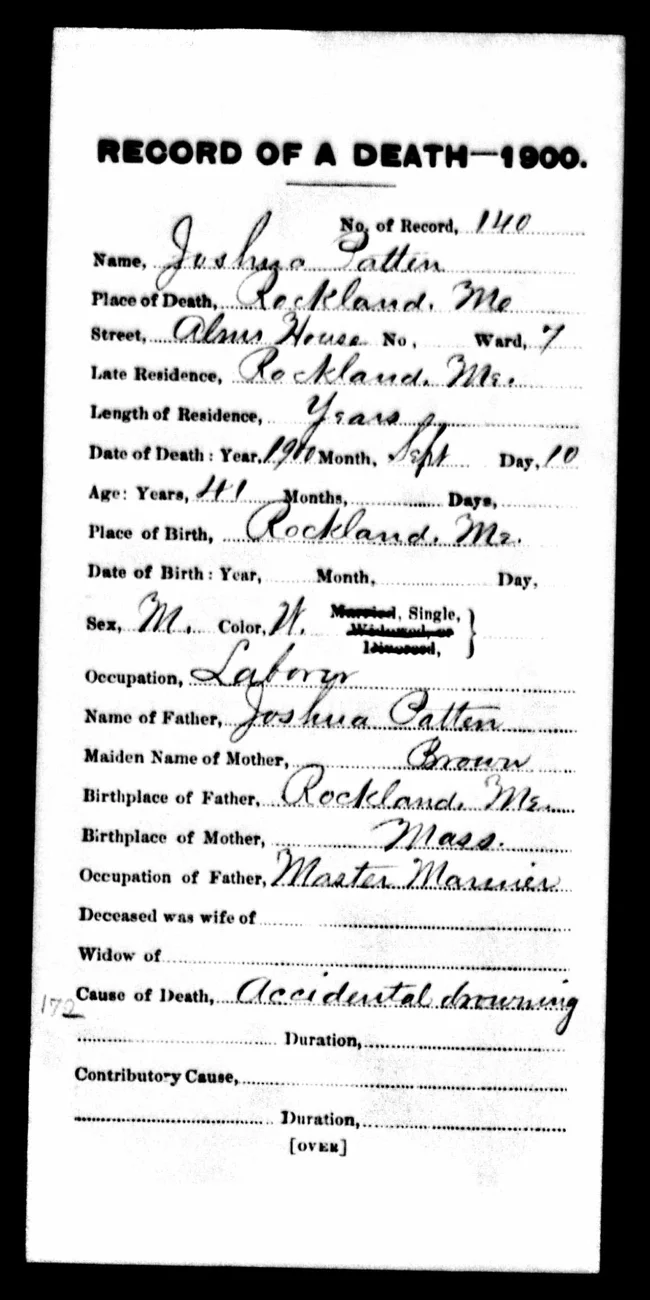 RECORD OF A DEATH—1900.
No. of Record, 140
Name, Joshua Patten
Place of Death, Rockland, Me
Street, Alms House No, Ward, 7
Late Residence, Rockland, Me.
Length of Residence, Years
Date of Death: Year, 1900 Month, Sept Day, 10
Age: Years, 41 Months, Days,
Place of Birth, Rockland, Me.
Date of Birth: Year, Month, Day,
Sex, M. Color, W. Married, Single,
Widowed, or
Divorced,
Occupation, Laborer
Name of Father, Joshua Patten
Maiden Name of Mother, Brown
Birthplace of Father, Rockland, Me.
Birthplace of Mother, Mass.
Occupation of Father, Master Mariner
Deceased was wife of
Widow of
Cause of Death, Accidental drowning
172
Duration,
Contributory Cause,
Duration,
[OVER]